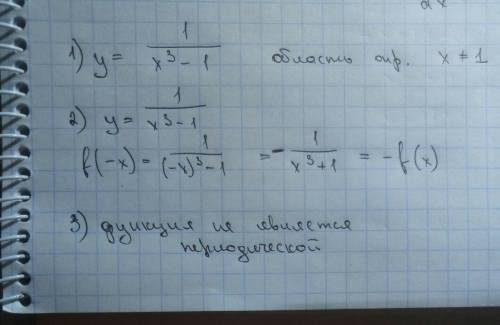 dx
1) y = 1/(x³ - 1) область опр. x ≠ 1
2) y = 1/(x³ - 1)
f(-x) = 1/((-x)³ - 1) = - 1/(x³ + 1) = - f(x)
3) функция не является
периодической